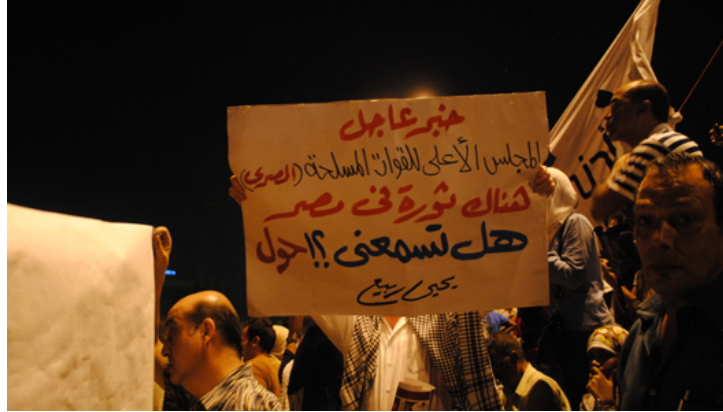 خبر عاجل
المجلس الأعلى للقوات المسلحة (المصري)
هناك ثورة فى مصر
هل تسمعنى ؟! حول
يحيى ربيع